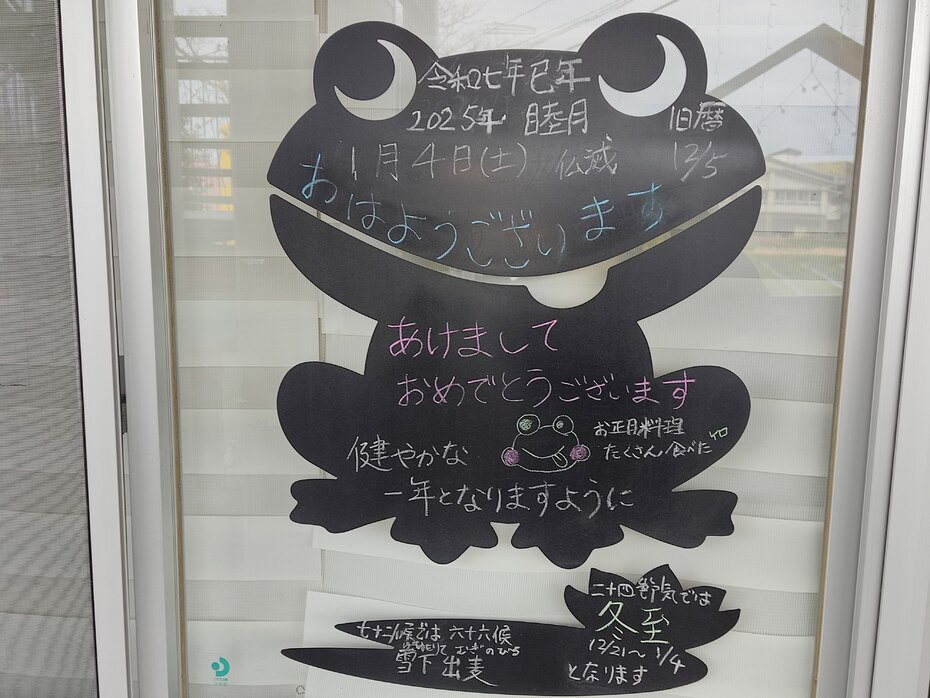 令和七年巳年
2025年 睦月 旧暦
1月4日(土) 仏滅 12/5
おはようございます
あけまして
おめでとうございます
お正月料理
たくさん食べた
健やかな
一年となりますように
二十四節気では
冬至
12/21〜1/4
となります
七十二候では 六十六候
むぎのびる
雪下出麦